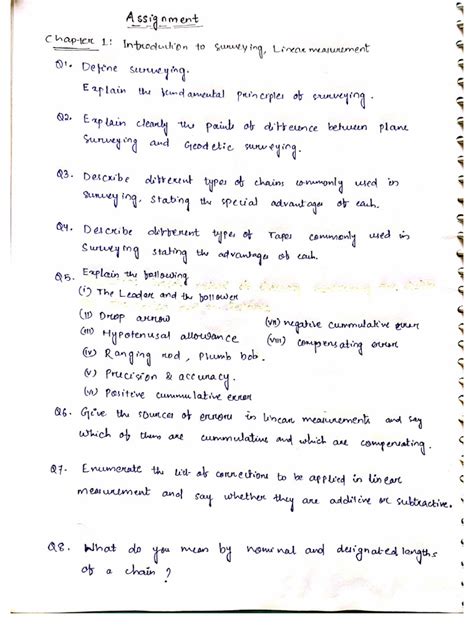 Assignment
Chapter 1: Introduction to surveying, Linear measurement
Q1. Define surveying.
Explain the fundamental principles of surveying.
Q2. Explain clearly the points of difference between plane
surveying and Geodetic surveying.
Q3. Describe different types of chains commonly used in
surveying, stating the special advantages of each.
Q4. Describe different types of Tapes commonly used in
surveying stating the advantages of each.
Q5. Explain the following
(i) The Leader and the follower
(ii) Drop arrow
(iii) Hypotenusal allowance
(iv) Ranging rod, Plumb bob.
(v) Precision & accuracy.
(vi) Positive cummulative error
(vii) negative cummulative error
(viii) compensating error
Q6. Give the sources of errors in linear measurements and say
which of them are cummulative and which are compensating.
Q7. Enumerate the list of corrections to be applied in linear
measurement and say whether they are additive or subtractive.
Q8. What do you mean by nominal and designated lengths
of a chain?